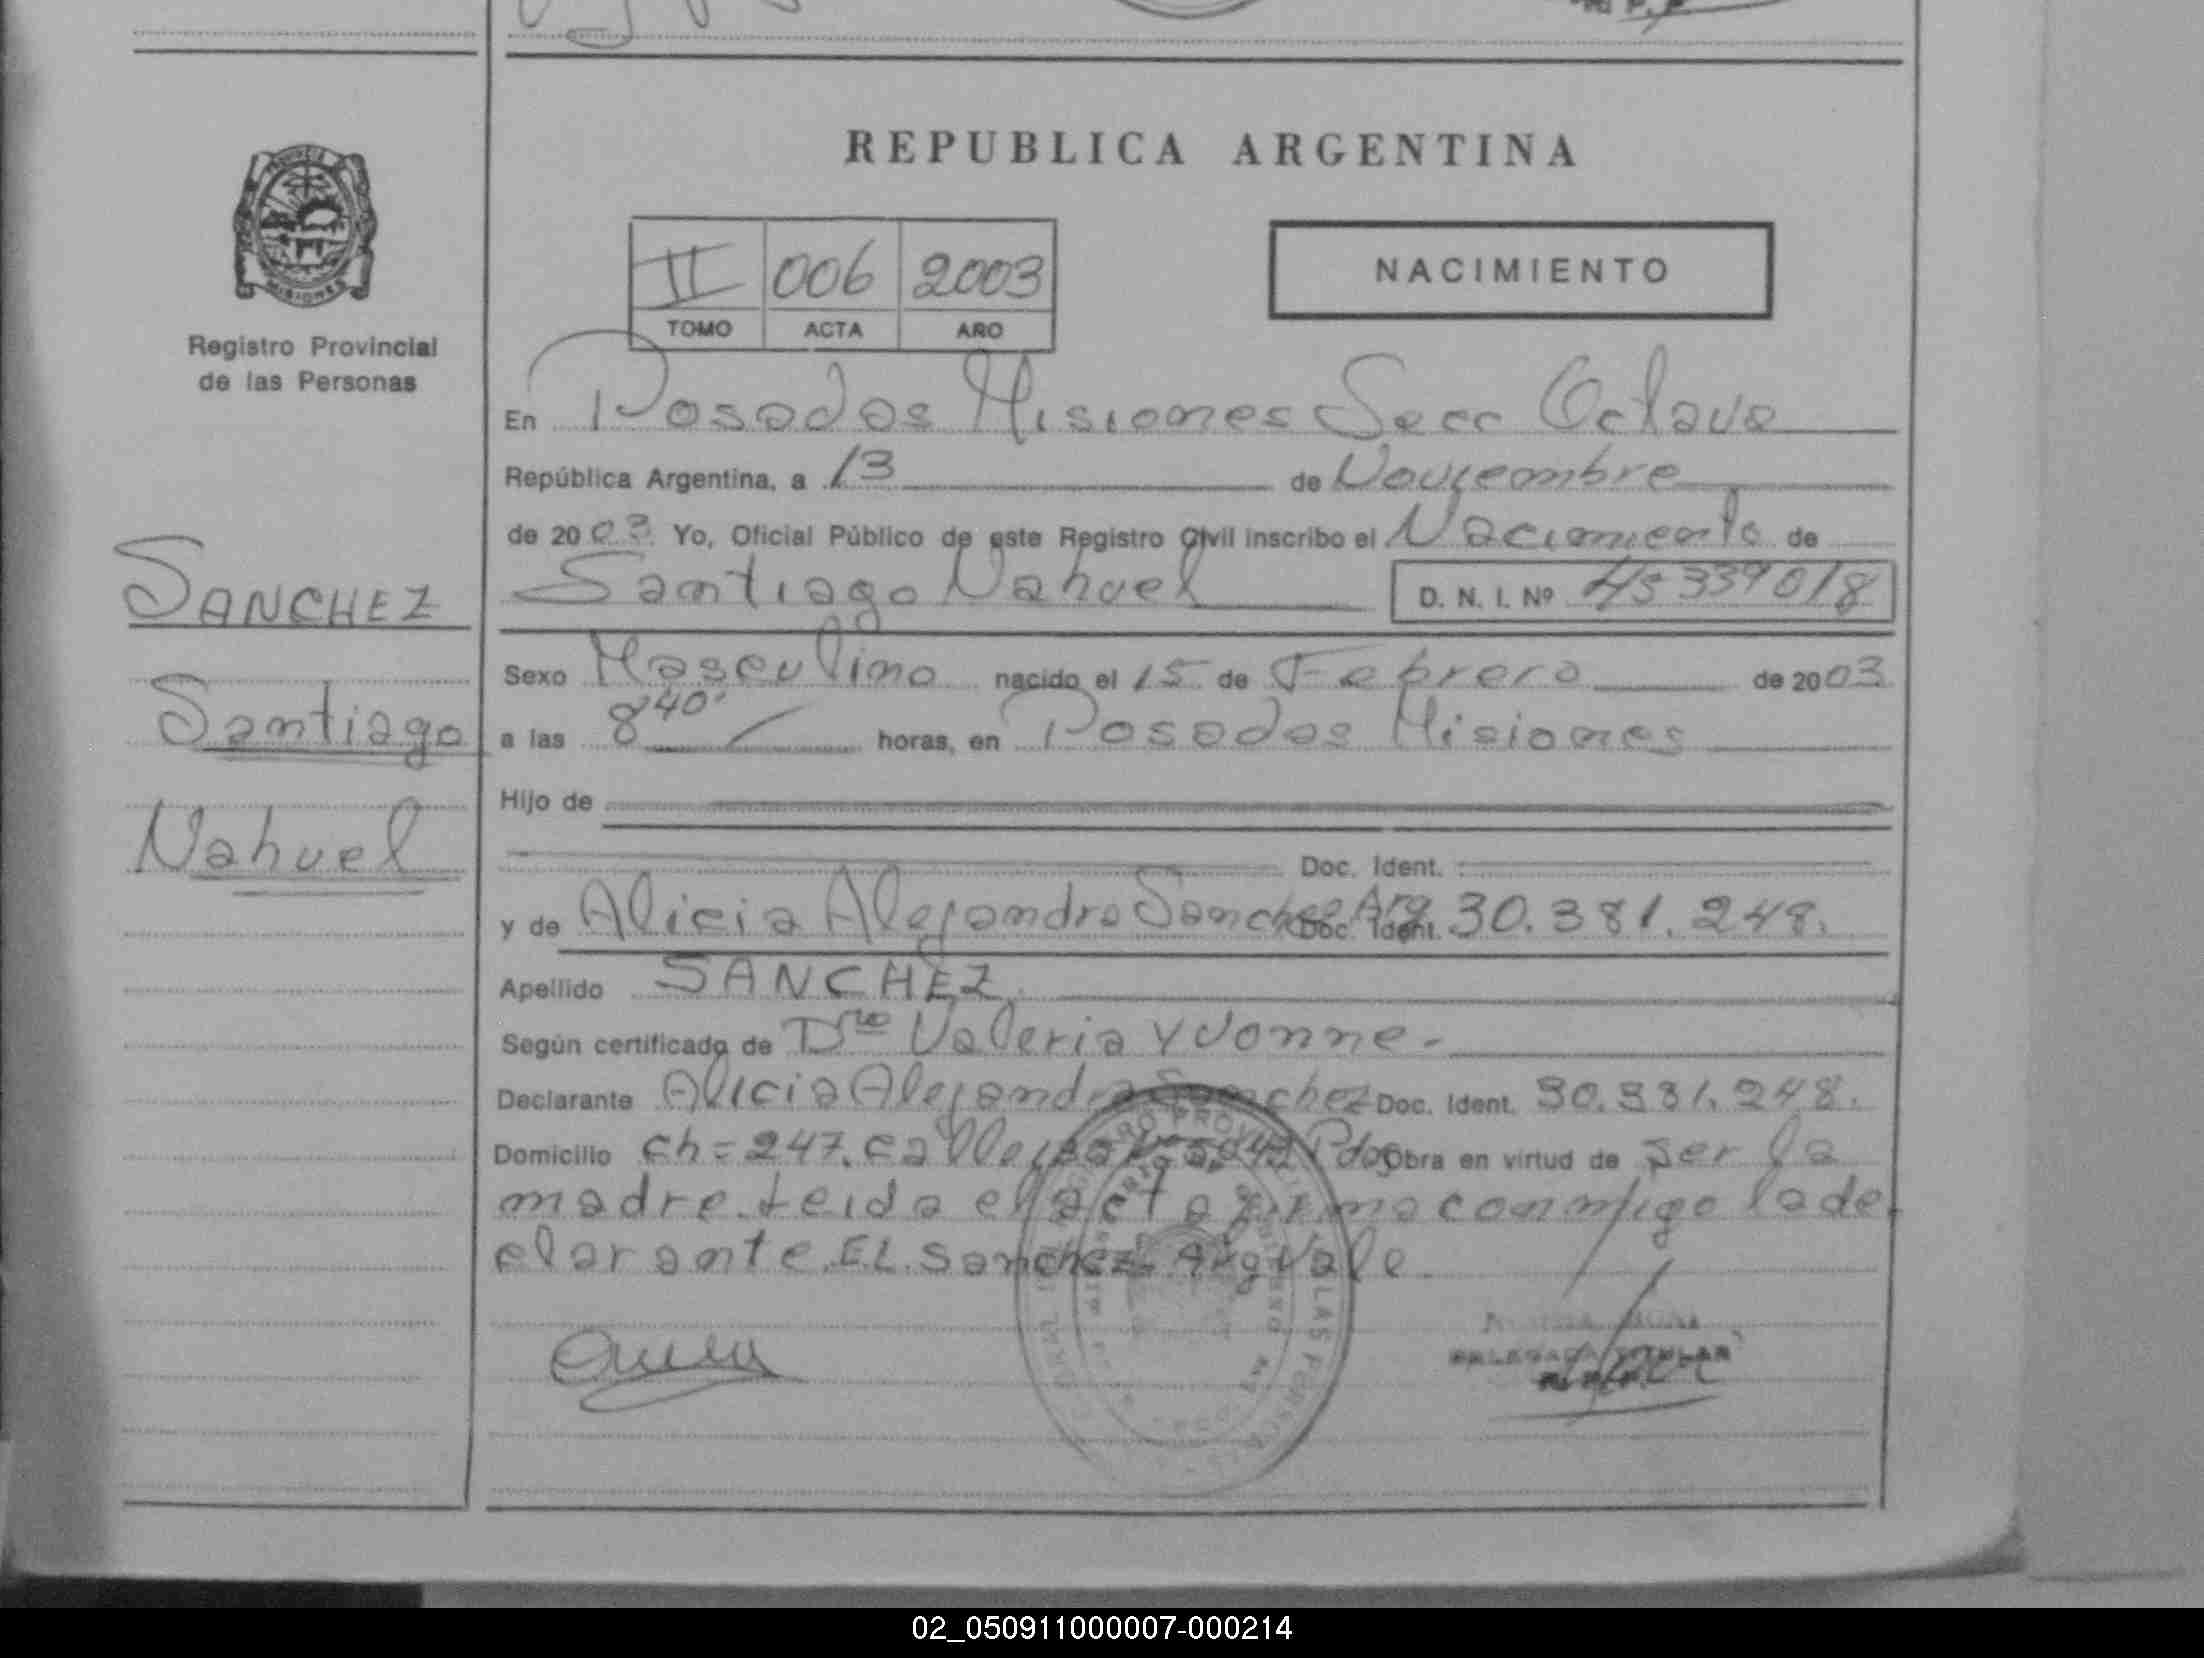 REPUBLICA ARGENTINA
II 006 2003
TOMO ACTA AÑO
NACIMIENTO
Registro Provincial
de las Personas
SANCHEZ
Santiago
Nahuel
En Posadas Misiones Secc Octava
República Argentina, a 13 de Noviembre
de 20 03 Yo, Oficial Público de este Registro Civil inscribo el Nacimiento de
Santiago Nahuel D. N. I. Nº 45339018
Sexo Masculino nacido el 15 de Febrero de 20 03
a las 8 40' horas, en Posadas Misiones
Hijo de
Doc. Ident.
y de Alicia Alejandra Sanchez Arg Doc. Ident. 30.381.248.
Apellido SANCHEZ
Según certificado de Dra Valeria Yvonne.-
Declarante Alicia Alejandra Sanchez Doc. Ident. 30.381.248.
Domicilio Ch=247. Calle Pdas Obra en virtud de ser la
madre. Leida el acta firma conmigo la de
clarante. EL. Sanchez. Arg Vale
DELEGADA TITULAR
02_050911000007-000214